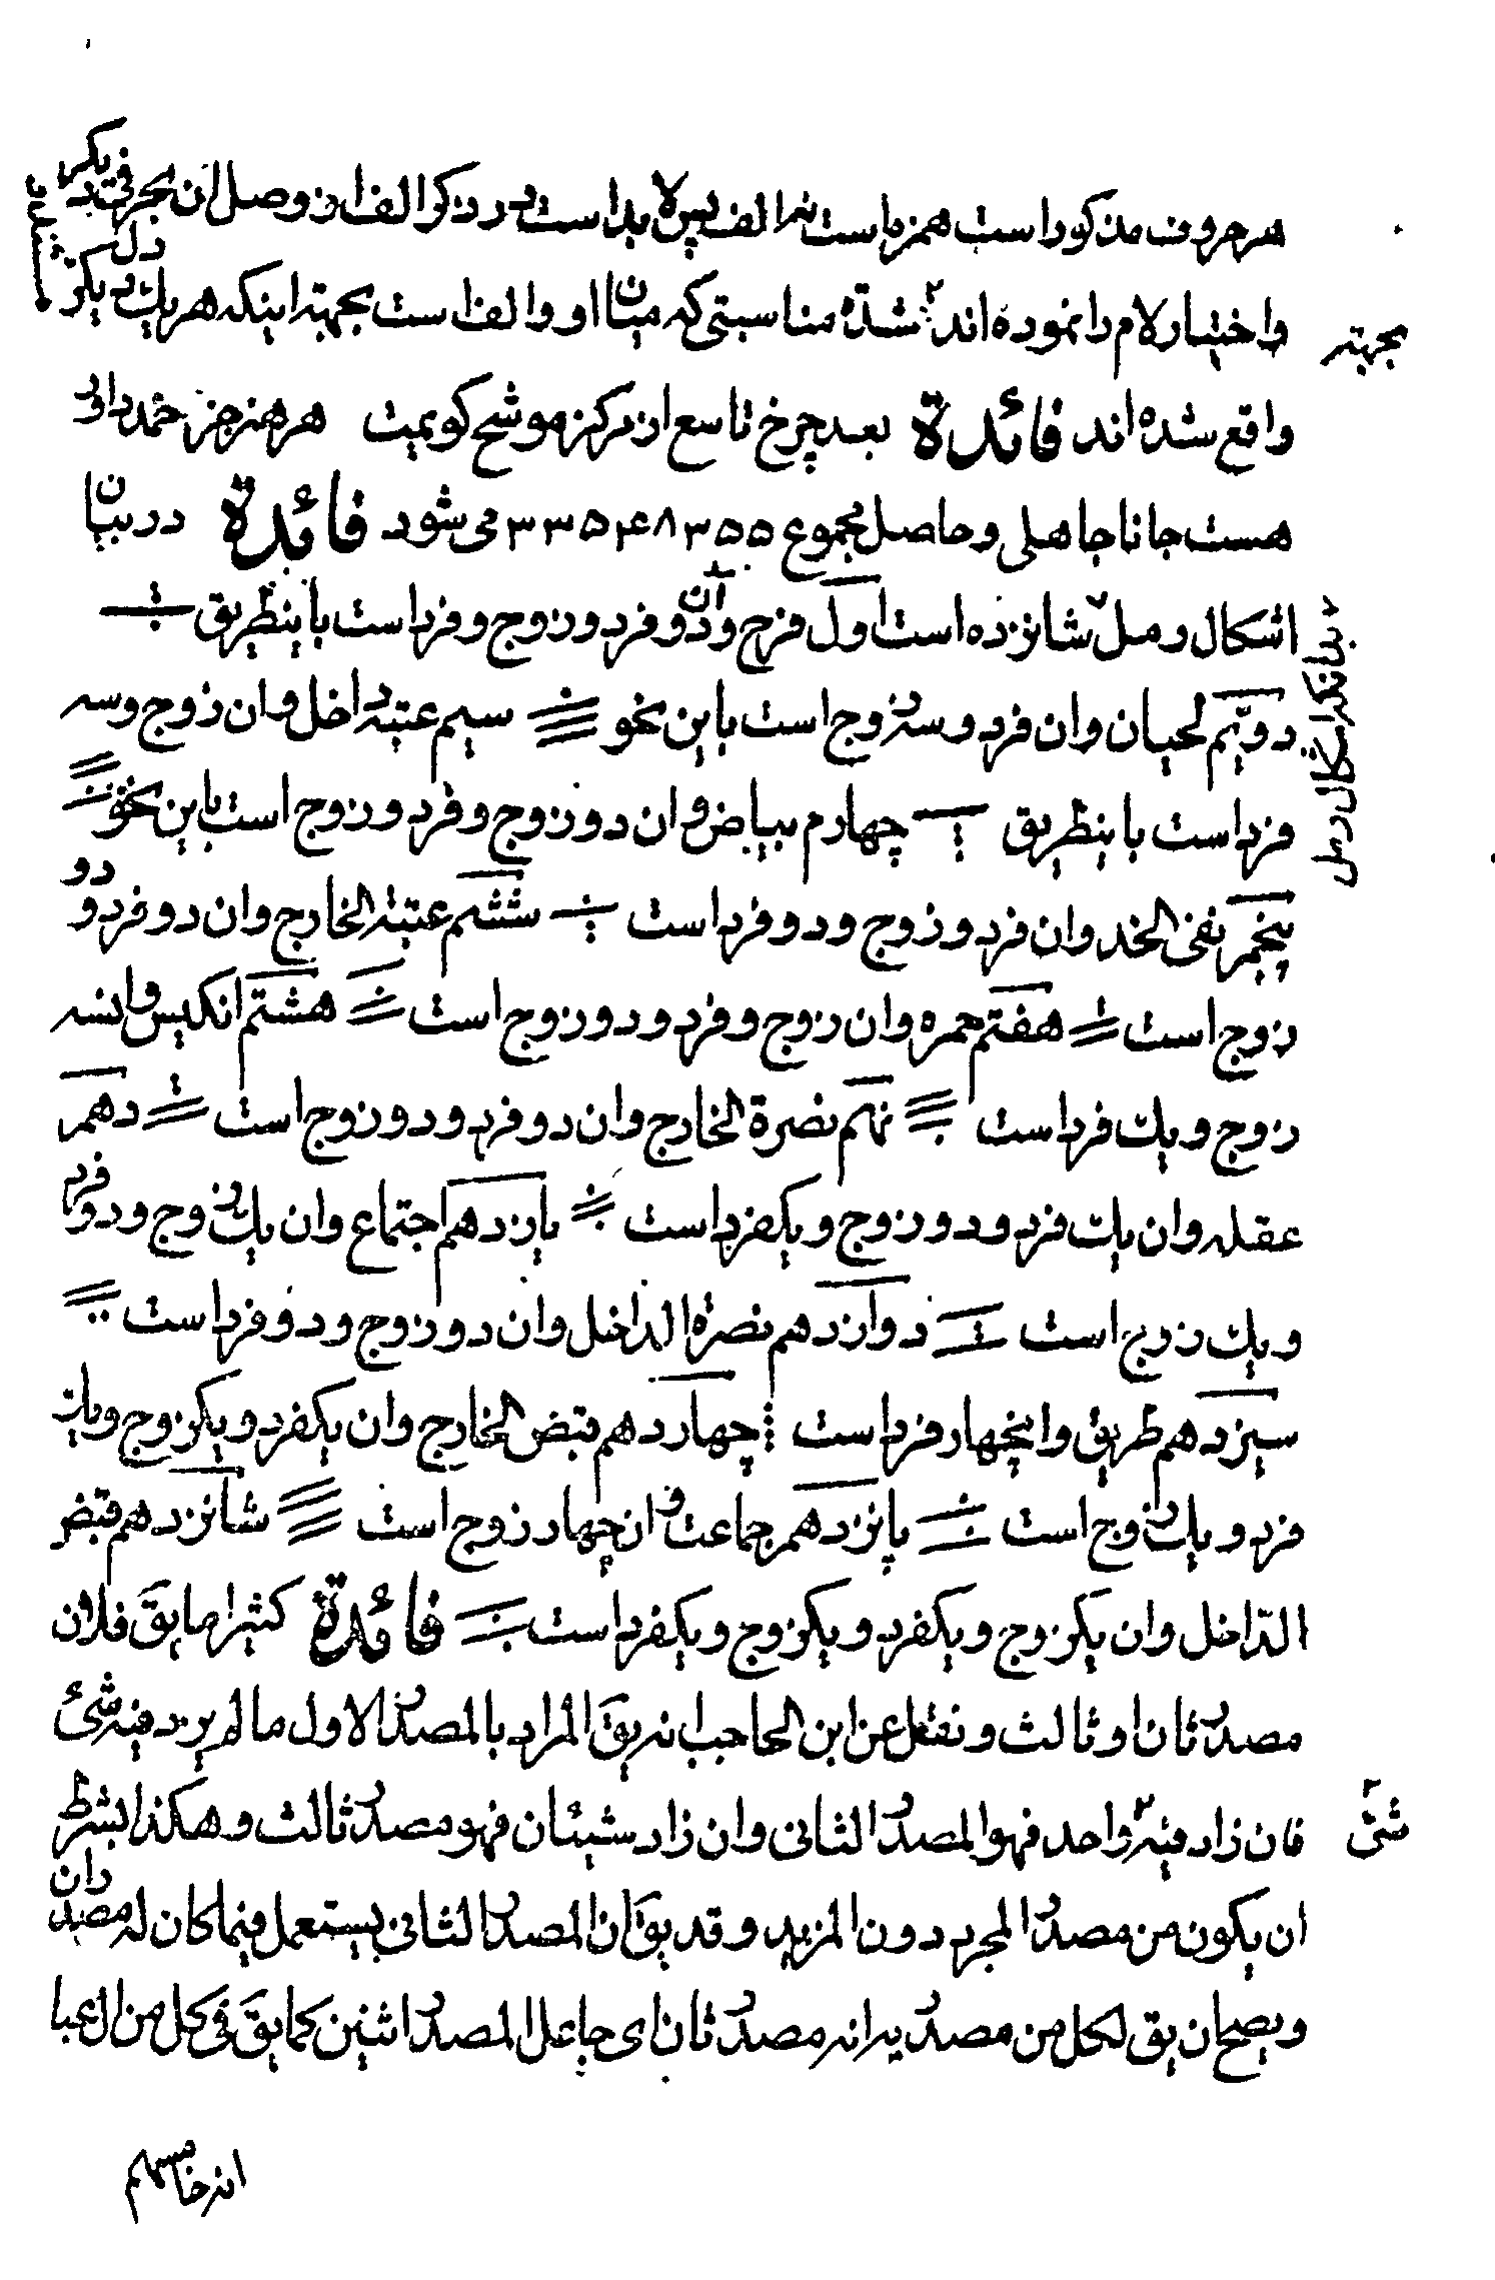 هر حروف مذکور است همزه است نه الف پس لابد است در ذکر الف از وصل آن بحرفی دیگر
واختیار لام را نموده اند شدة مناسبتی که میان او والف است بجهته اینکه هر یک دل دیکری
بجهته
واقع شده اند فائدة بعد چرخ تاسع از مرکز موشح کویمت هر هنر جز
هست جانا جاهلی و حاصل مجموع ۳۳۵۴۸۳۵۵ می شود فائدة در بیان
اشکال رمل شانزده است اول فرج وآن دو فرد و زوج و فرد است باینطریق
بیان اشکال رمل
دویّم لحیان وان فرد و سه زوج است باین نحو سیم عتبه داخل وان زوج وسه
فرد است باینطریق چهارم بیاض وان دو زوج و فرد و زوج است باین نحو
پنجم نقی الخد وان فرد و زوج و دو فرد است ششم عتبة الخارج وان دو فرد و دو
زوج است هفتم حمره وان زوج و فرد و دو زوج است هشتم انکیس وان سه
زوج و یک فرد است نهم نصرة الخارج وان دو فرد و دو زوج است دهم
عقله وان یک فرد و دو زوج و یکفرد است یازدهم اجتماع وان یک زوج و دو فرد
و یک زوج است دوازدهم نصرة الداخل وان دو زوج و دو فرد است
سیزدهم طریق وان چهار فرد است چهاردهم قبض الخارج وان یکفرد و یکزوج و یک
فرد و یک زوج است پانزدهم جماعت وان چهار زوج است شانزدهم قبض
الدّاخل وان یکزوج و یکفرد و یکزوج و یکفرد است فائدة کثیرا ما یق فلان
مصدر ثان او ثالث و نقل عن ابن الحاجب انه یق المراد بالمصدر الاول ما لم یزد فیه شئ
فان زاد فیه واحد فهو المصدر الثانی وان زاد شیئان فهو مصدر ثالث وهکذا بشرط
شئ
ان یکون من مصدر المجرد دون المزید وقد یق ان المصدر الثانی یستعمل فیما کان له مصدران
ویصح ان یق لکل من مصدریه انه مصدر ثان ای جاعل المصدر اثنین کما یق فی کل من ال عبا
انه خامسهم